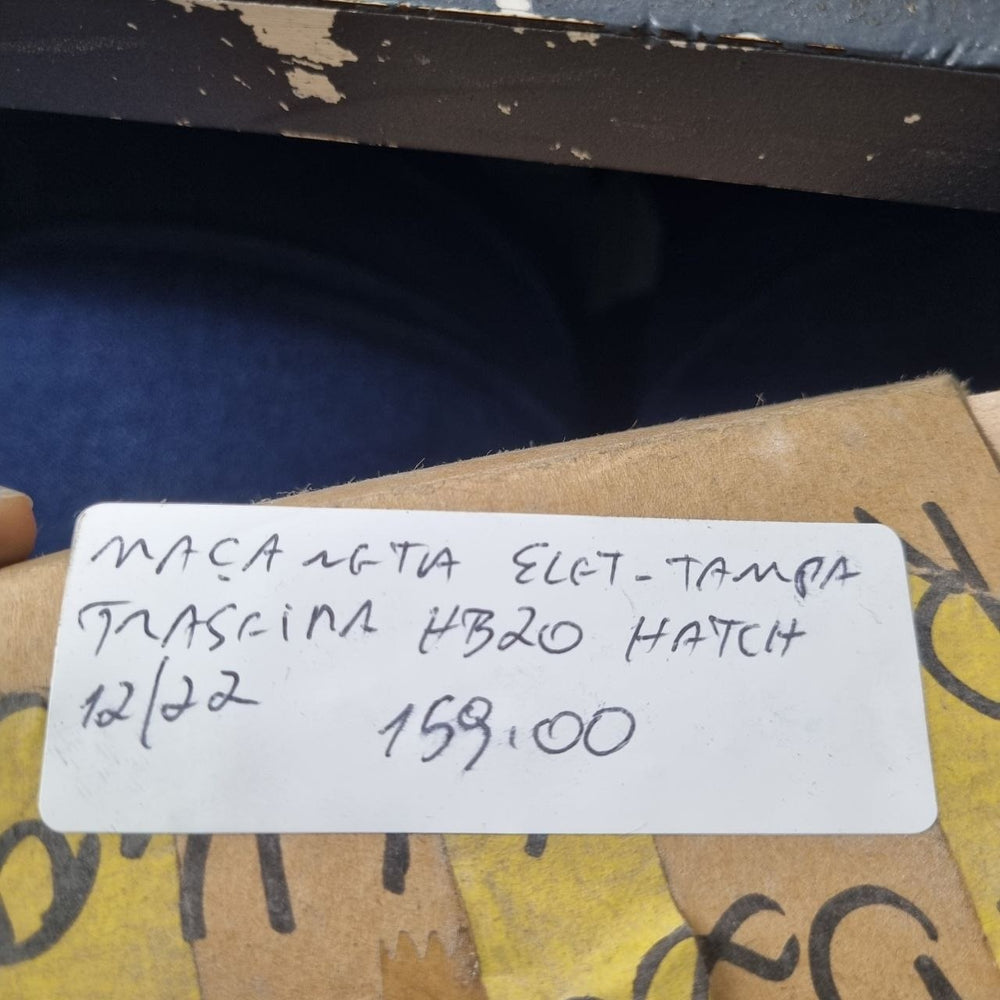 MAÇANETA ELET-TAMPA
TRASEIRA HB20 HATCH
12/22
159.00